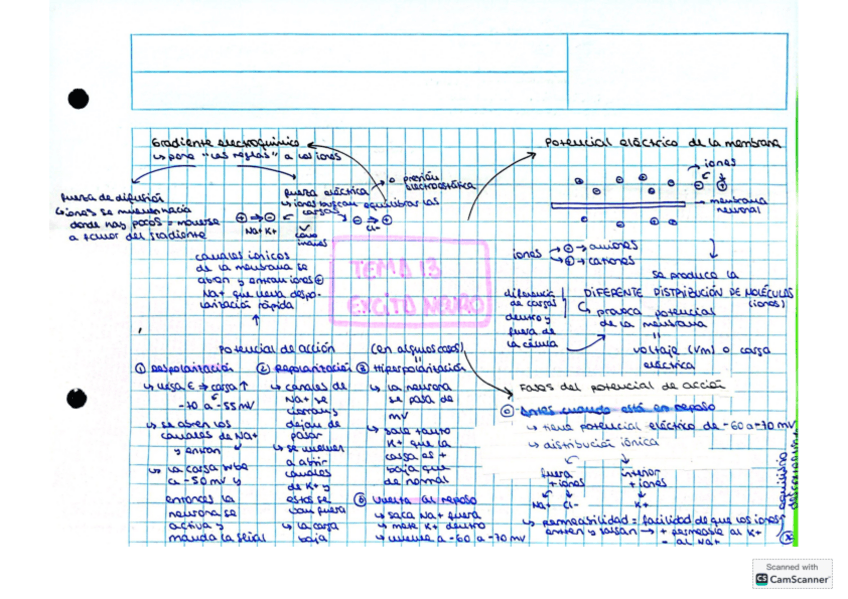 Gradiente electroquímico
↳ pone "las reglas" a los iones
fuerza de difusión
↳ iones se mueven hacia
donde hay pocos = moverse
a favor del gradiente
fuerza eléctrica → o presión
electrostática
↳ iones buscan equilibrar las
cargas
⊕ → ⊖
Na+ K+
⊖ → ⊕
Cl-
canales iónicos
de la membrana se
abren y entran iones ⊕
Na+ que lleva despo-
larización rápida
TEMA 13
EXCITO NEURO
Potencial eléctrico de la membrana
iones
⊖ ⊕
membrana
neuronal
iones → ⊖ → aniones
→ ⊕ → cationes
se produce la
DIFERENTE DISTRIBUCIÓN DE MOLÉCULAS
(iones)
↳ provoca potencial
de la membrana
diferencia
de cargas
dentro y
fuera de
la célula
voltaje (Vm) o carga
eléctrica
Potencial de acción
(en algunos casos)
① Despolarización
↳ llega E ⇒ carga ↑
-70 a -55 mV
↳ se abren los
canales de Na+
y entran
↳ la carga sube
a -50 mV y
entonces la
neurona se
activa y
manda la señal
② Repolarización
↳ canales de
Na+ se
cierran y
dejan de
pasar
↳ se vuelven
a abrir
canales
de K+ y
estos se
van fuera
↳ la carga
baja
③ Hiperpolarización
↳ la neurona
se pasa de
mV
↳ sale tanto
K+ que la
carga es +
baja que
de normal
Vuelta al reposo
↳ saca Na+ fuera
↳ mete K+ dentro
↳ vuelve a -60 a -70 mV
Fases del potencial de acción
⓪ Antes cuando está en reposo
↳ tiene potencial eléctrico de -60 a -70 mV
↳ distribución iónica
fuera
+ iones
Na+ Cl-
interior
+ iones
K+
↳ permeabilidad = facilidad de que los iones
entren y salgan → + permeable al K+
- al Na+
equilibrio
Scanned with
CS CamScanner